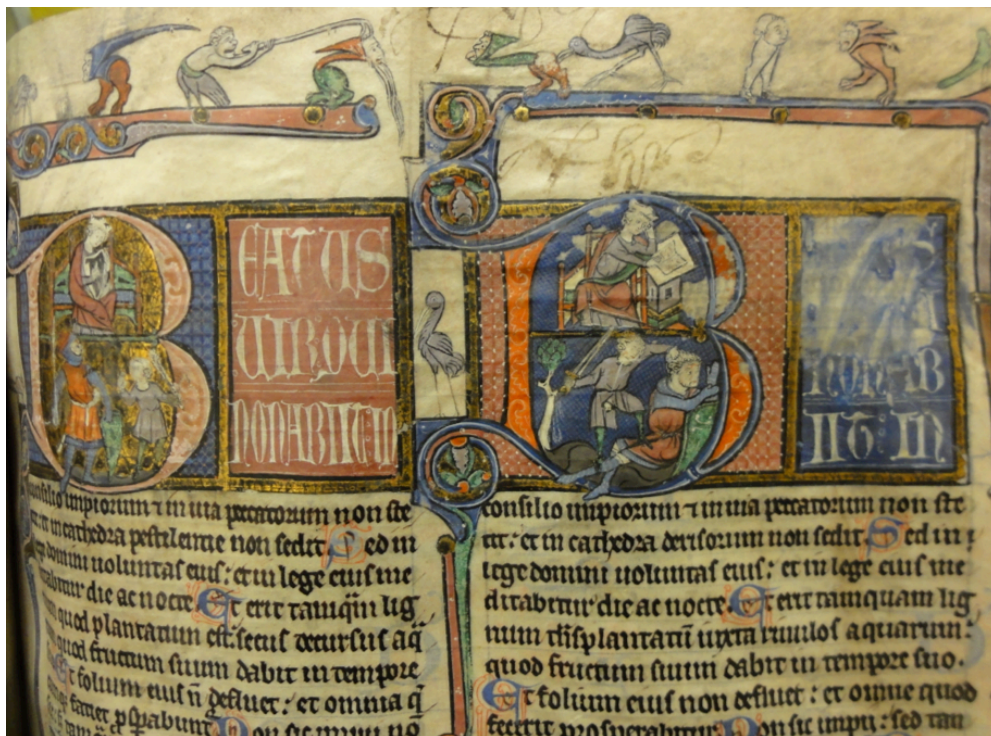 BEATUS
UIR QUI
NON ABIIT IN
consilio impiorum ⁊ in uia peccatorum non ste
et in cathedra pestilentie non sedit. Sed in
lege domini uoluntas eius: et in lege eius me
ditabitur die ac nocte. Et erit tamq̄m lig
quod plantatum est secus decursus aq̄
quod fructum suum dabit in tempore
Et folium eius n̄ defluet: et omnia q̄
faciet ꝓsꝑabunt Non sic impii no
B
NON AB
IIT: IN
consilio impiorum ⁊ in uia peccatorum non ste
tit: et in cathedra derisorum non sedit. Sed in
lege domini uoluntas eius: et in lege eius me
ditabitur die ac nocte. Et erit tamquam lig
num tn̄splantatū iuxta riuulos aquarum:
quod fructum suum dabit in tempore suo.
Et folium eius non defluet: et omne quod
fecerit prosperabitur. Non sic impii: sed tan